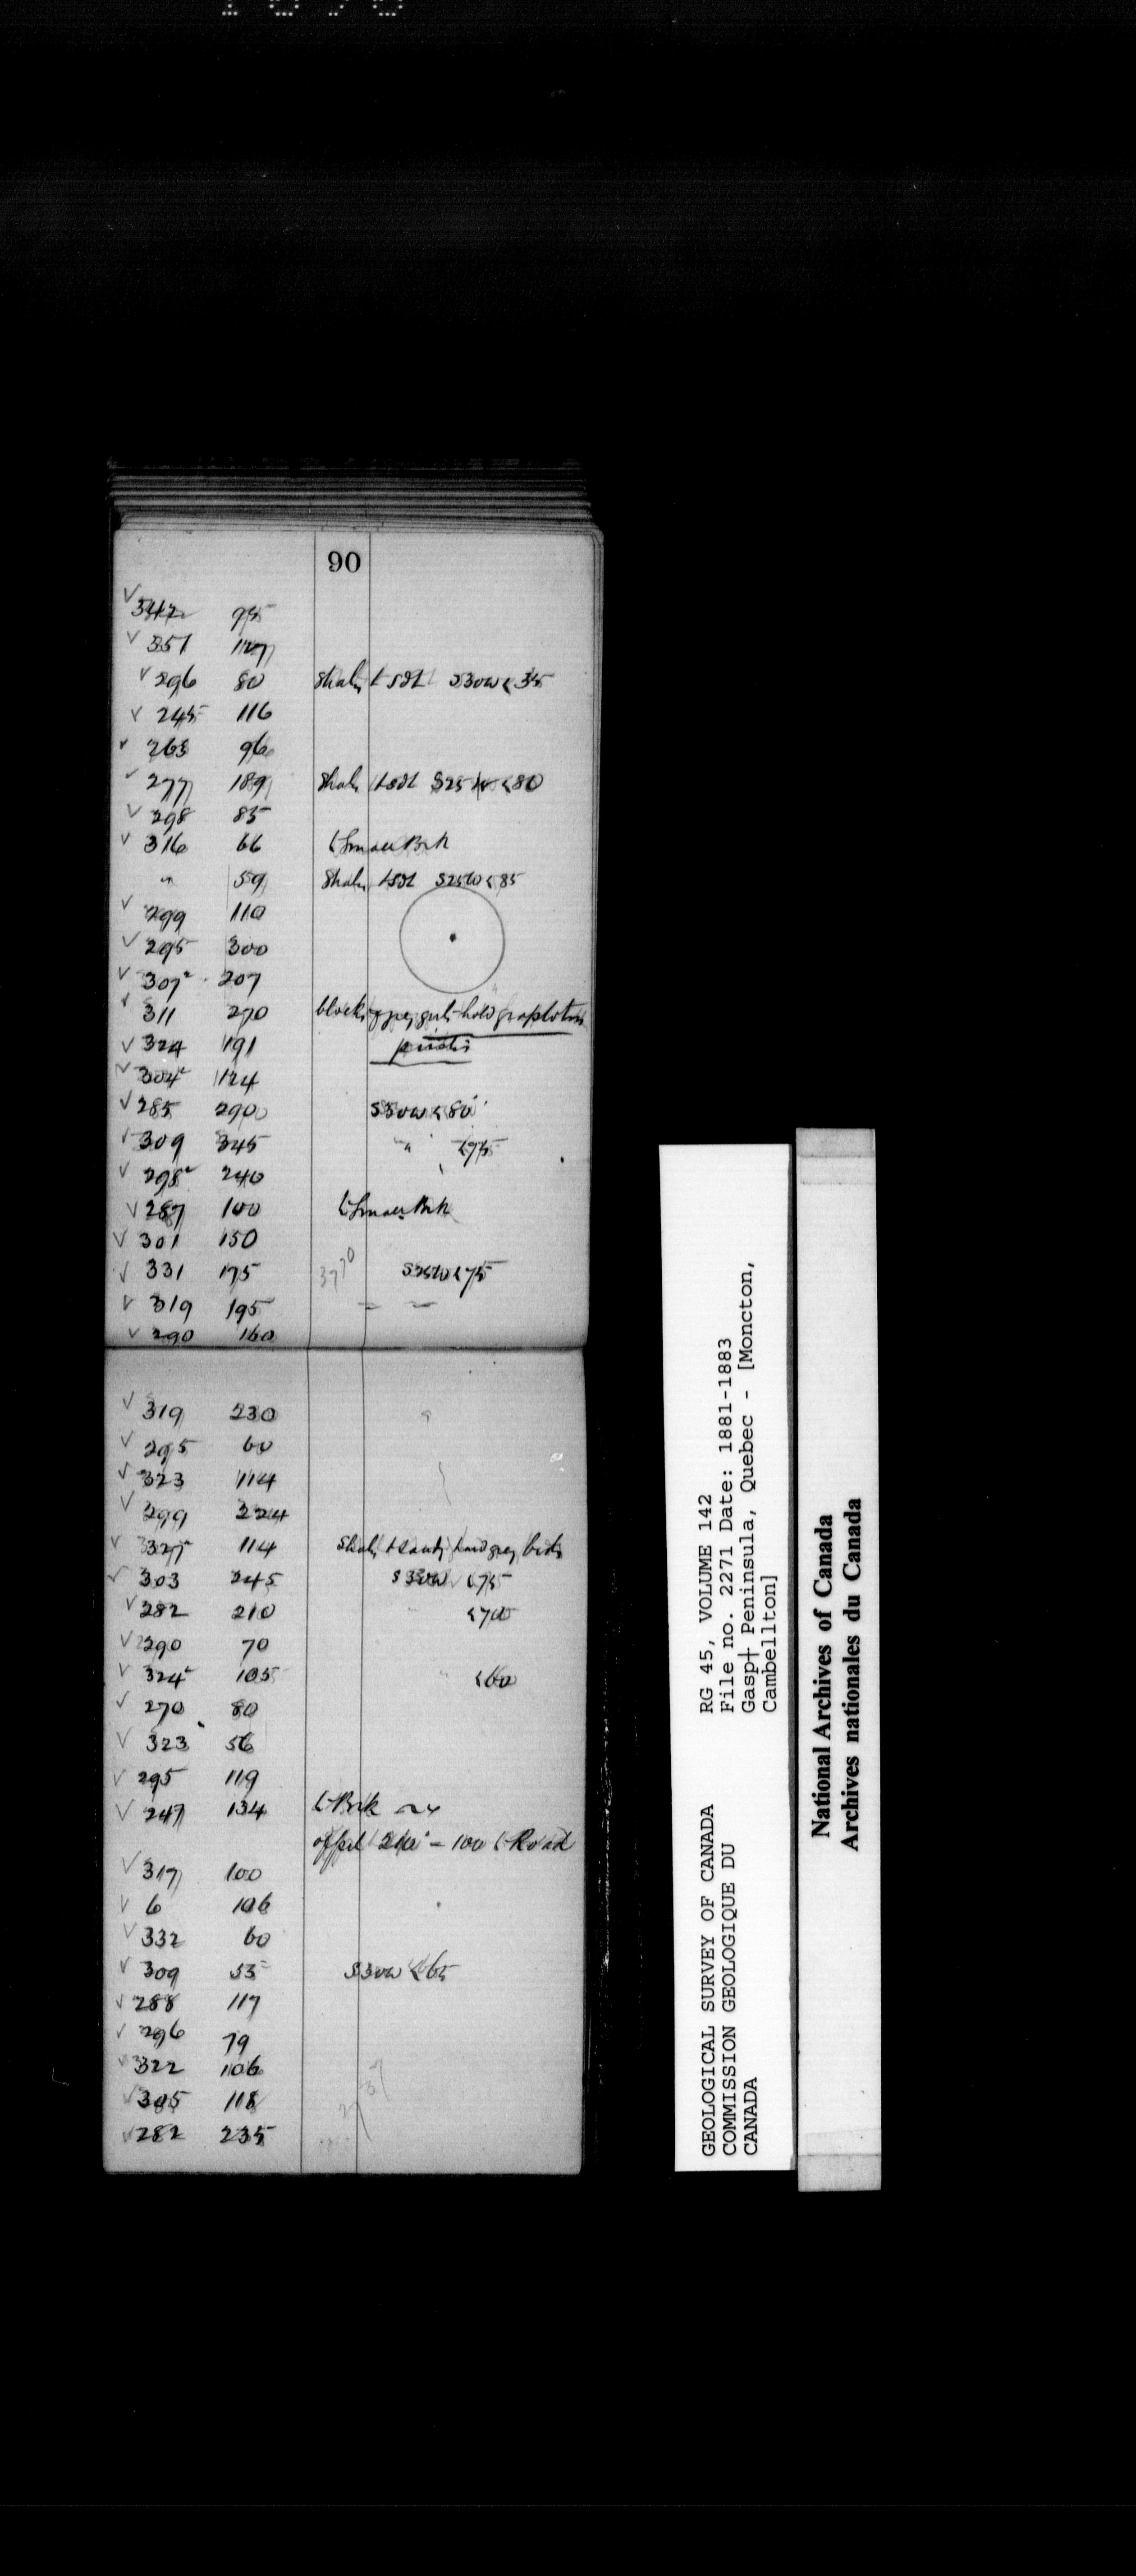 90
✓ 342 95
✓ 351 127
✓ 296 80 Shales & sst S30W < 35
✓ 245 116
✓ 263 96
✓ 277 189 Shales & sst S25W < 80
✓ 298 85
✓ 316 66 Small Brk
" 59 Shales & sst S25W < 85
✓ 299 110
✓ 295 300
✓ 307 207
✓ 311 270 blocks of grey hold graptolites
✓ 324 191
✓ 304 124
✓ 285 290 S30W < 80
✓ 309 345 " < 75
✓ 298 240
✓ 287 100 Small Brk
✓ 301 150
✓ 331 175 3770 S25W < 75
✓ 319 195
✓ 290 160
✓ 319 230
✓ 295 60
✓ 323 114
✓ 299 224
✓ 327 114 Shales & sandy hard grey beds
✓ 303 245 S30W < 75
✓ 282 210 < 70
✓ 290 70
✓ 324 105 " < 60
✓ 270 80
✓ 323 56
✓ 295 119
✓ 247 134 Brk
100 Road
✓ 317 100
✓ 6 106
✓ 332 60
✓ 309 53 S30W < 65
✓ 288 117
✓ 296 79
✓ 322 106
✓ 305 118
✓ 282 235
GEOLOGICAL SURVEY OF CANADA
COMMISSION GEOLOGIQUE DU
CANADA
RG 45, VOLUME 142
File no. 2271 Date: 1881-1883
Gasp† Peninsula, Quebec - [Moncton,
Cambellton]
National Archives of Canada
Archives nationales du Canada